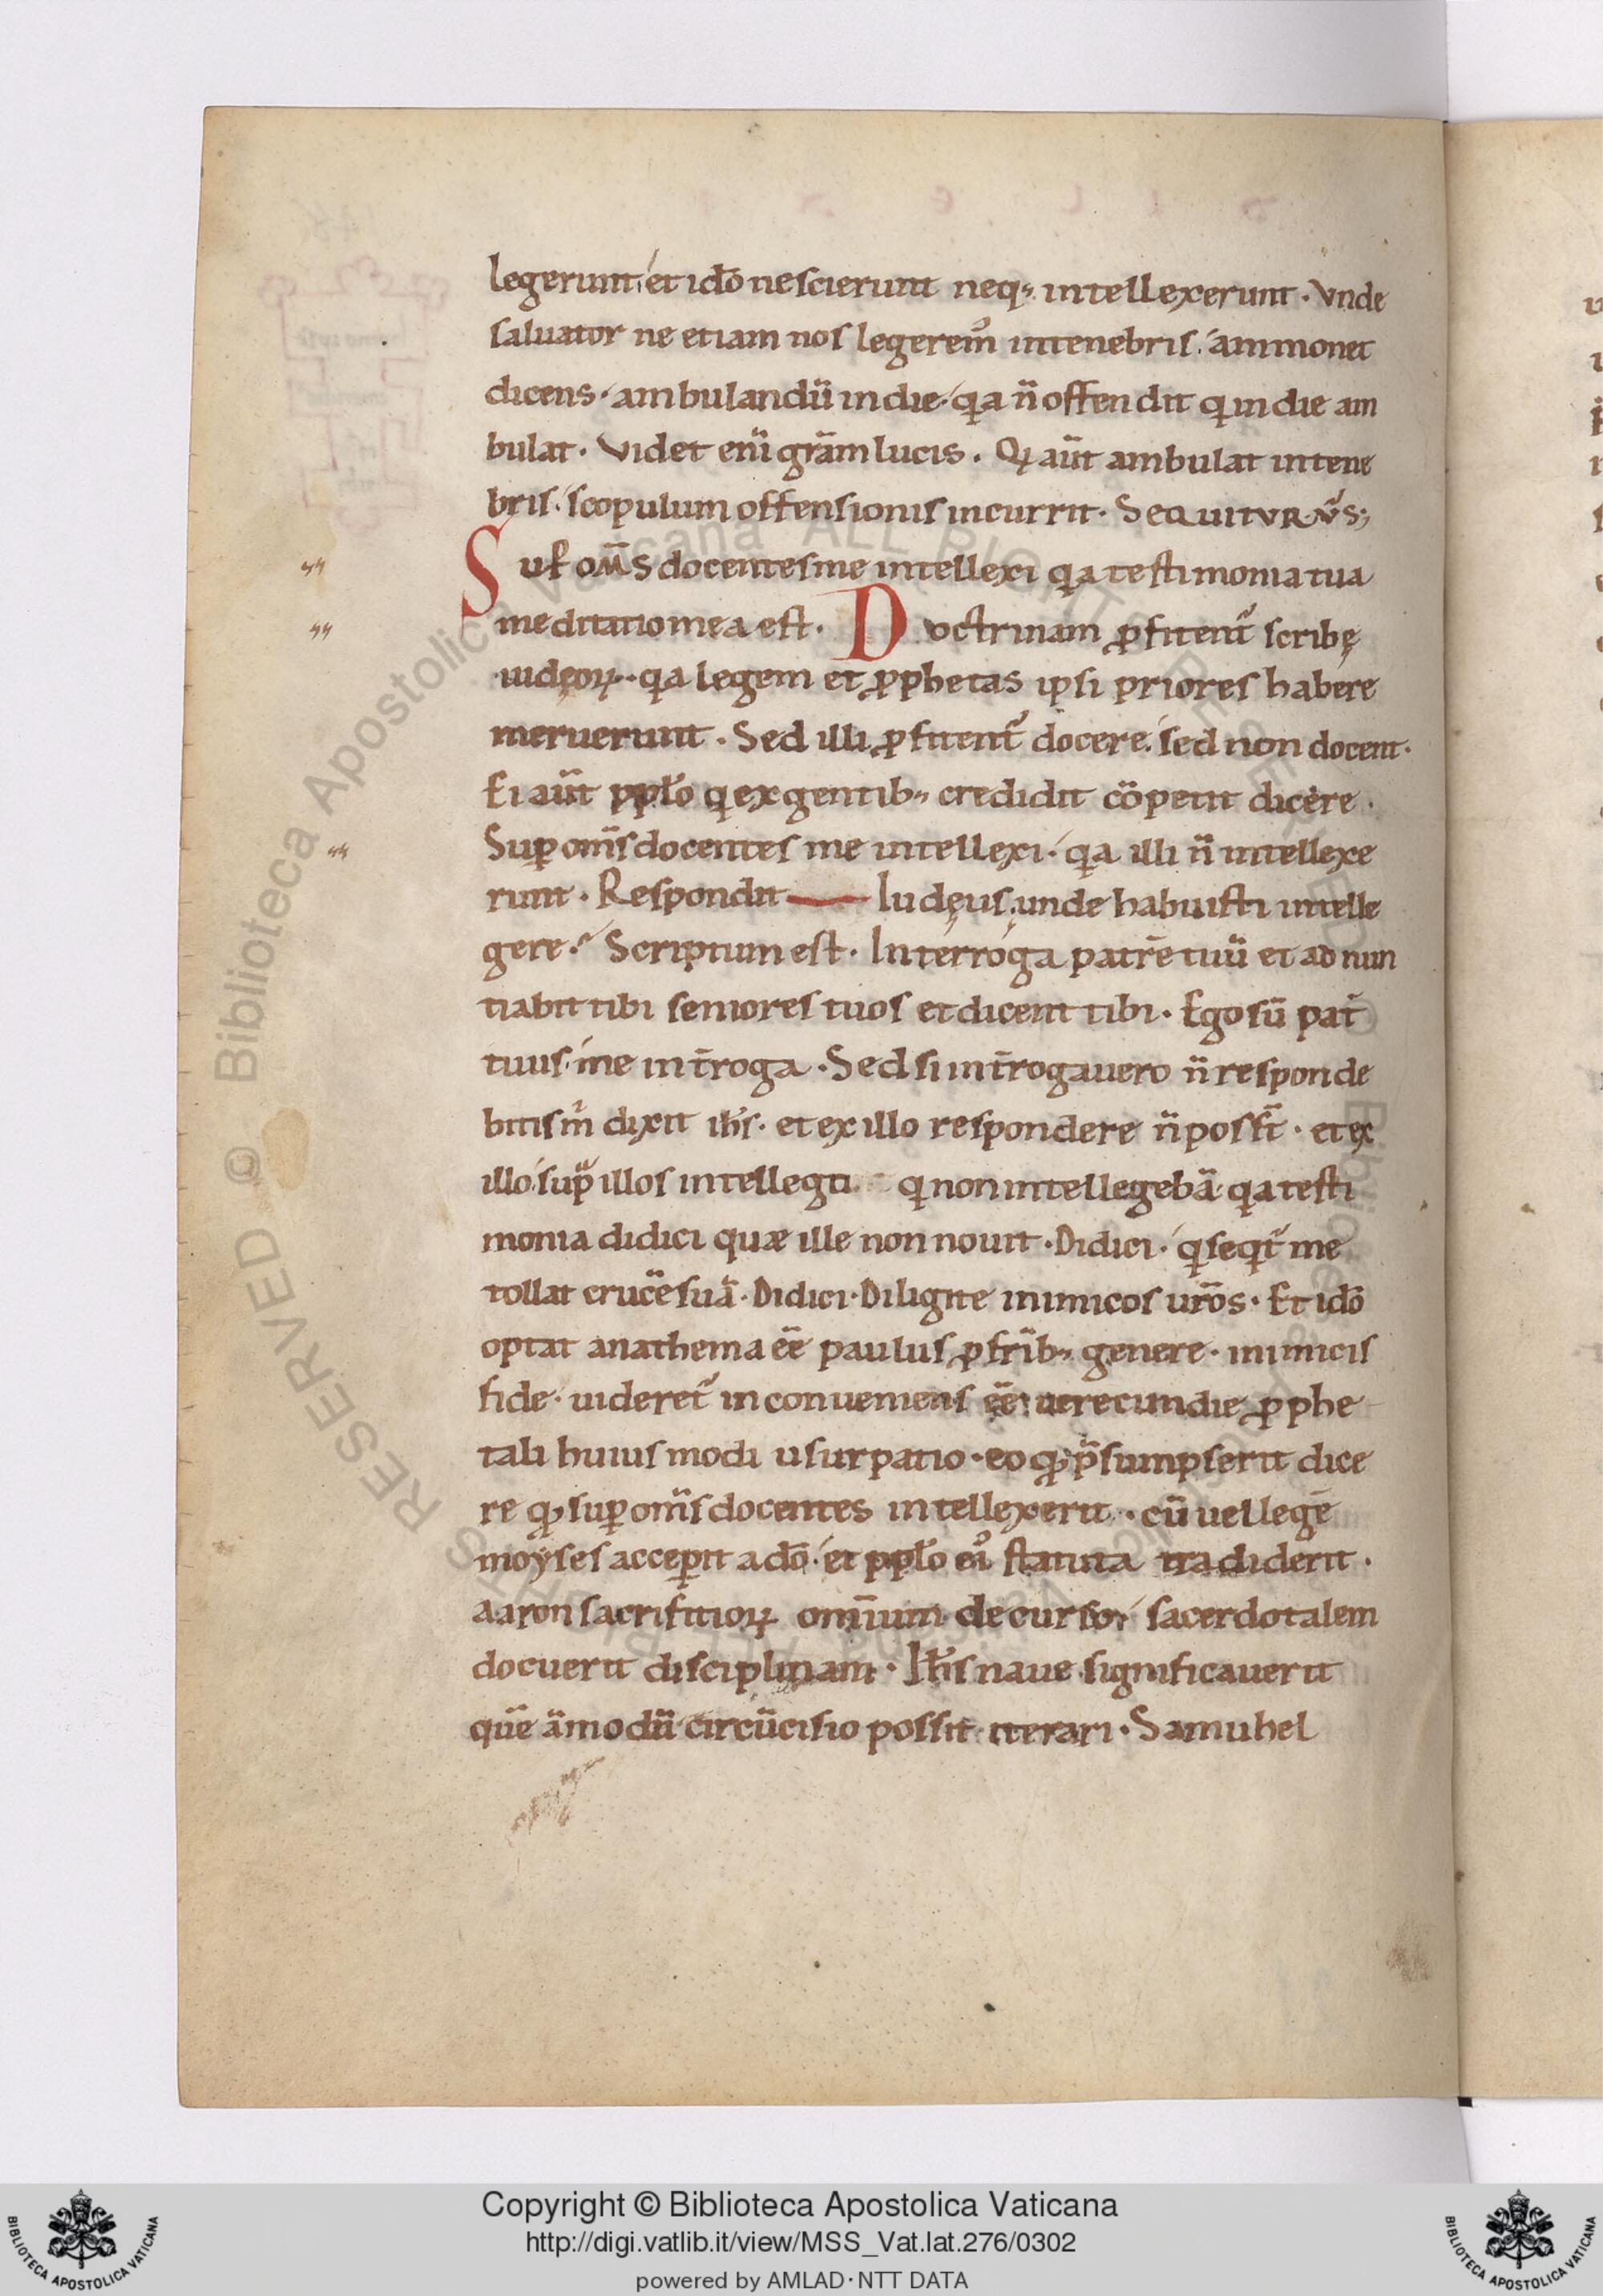 legerunt; et idō nescierunt neq; intellexerunt. Vnde
saluator ne etiam nos legerem᾽ intenebris. ammonet
dicens. ambulandū indie. qa n̄ offendit qui indie am
bulat. Videt eni grām lucis. Qi aūt ambulat intene
bris. scopulum offensionis incurrit. SequitVR v̄s;
Sup om̄s docentesme intellexi qa testimonia tua
meditatiomea est. Doctrinam ꝓfitent᾽ scribę
iudęoꝝ. qa legem et ꝓphetas ipsi priores habere
meruerunt. Sed illi ꝓfitent᾽ docere. sed non docent.
Ei aūt pplo qex gentib; credidit cōpetit dicere.
Suꝑ om̄s docentes me intellexi. qa illi n̄ intellexe
runt. Respondit — Iudęus. unde habuisti intelle
gere? Scriptum est. Interroga patrē tuū et ad nun
tiabit tibi seniores tuos et dicent tibi. Ego sū pat̄
tuus. me int̄roga. Sed si int̄rogauero n̄ responde
bitis m̄ dixit ih̄s. et ex illo respondere n̄ poss̄t. et ex
illo. sup illos intellegti qnonintellegebā qa testi
monia didici quæ ille non nouit. Didici. qseqt᾽ me
tollat crucē suā. Didici. Diligite inimicos ur̄os. Et idō
optat anathema eē paulus ꝓ fr̄ib; genere. inimicis
fide. uideret᾽ inconueniens eē uerecundie ꝓphe
tali huiusmodi usurpatio. eo qđ p̄sumpserit dice
re qđ suꝑ om̄s docentes intellexerit. cū uel legē
moyses acceꝑit a dō. et pplo ei᾽ statuta tradiderit.
aaron sacrifitioꝝ omīum decursor sacerdotalem
docuerit disciplinam. Ih̄s naue significauerit
quē āmodū circūcisio possit iterari. Samuhel
Copyright © Biblioteca Apostolica Vaticana
http://digi.vatlib.it/view/MSS_Vat.lat.276/0302
powered by AMLAD·NTT DATA